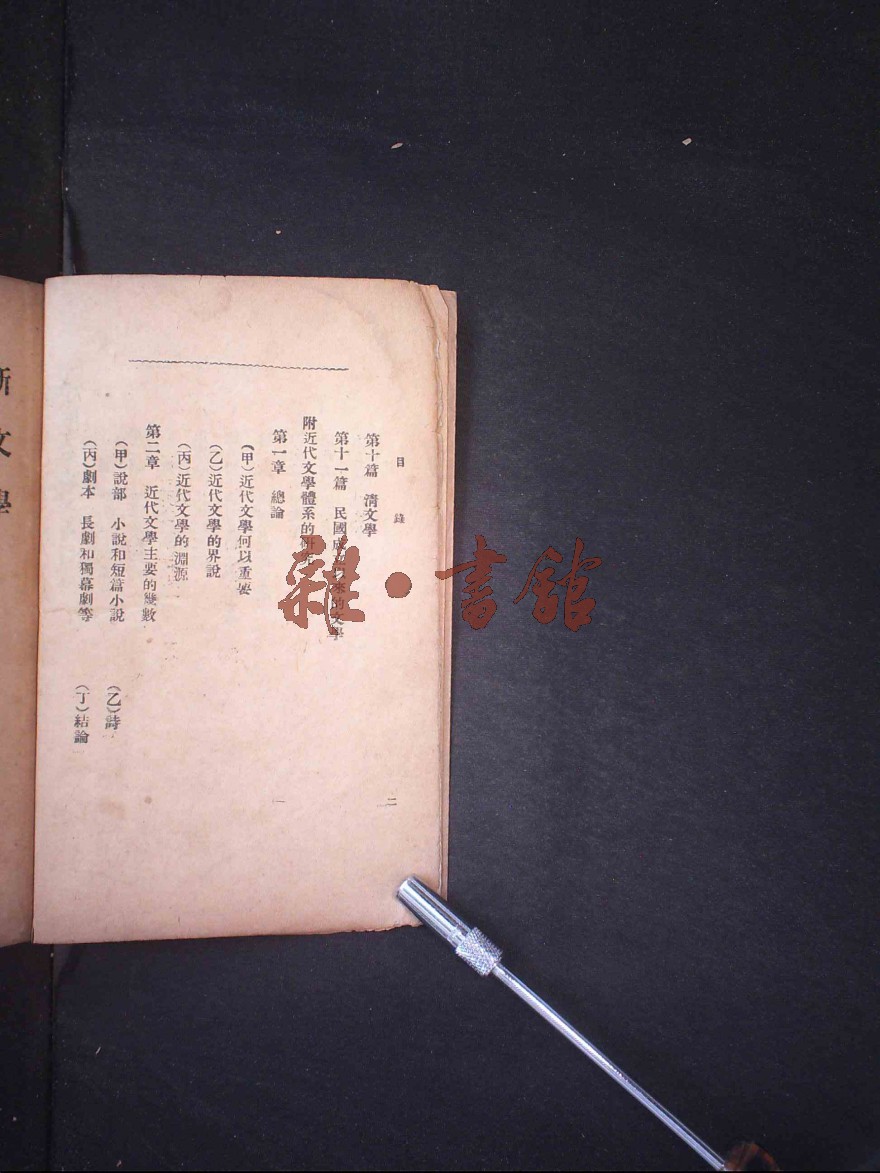 目錄
第十篇 清文學
第十一篇 民國成立以來的文學
附近代文學體系的研究
第一章 總論
(甲)近代文學何以重要
(乙)近代文學的界說
(丙)近代文學的淵源
第二章 近代文學主要的幾數
(甲)說部 小說和短篇小說 (乙)詩
(丙)劇本 長劇和獨幕劇等 (丁)結論
二
新文學
雜·書館